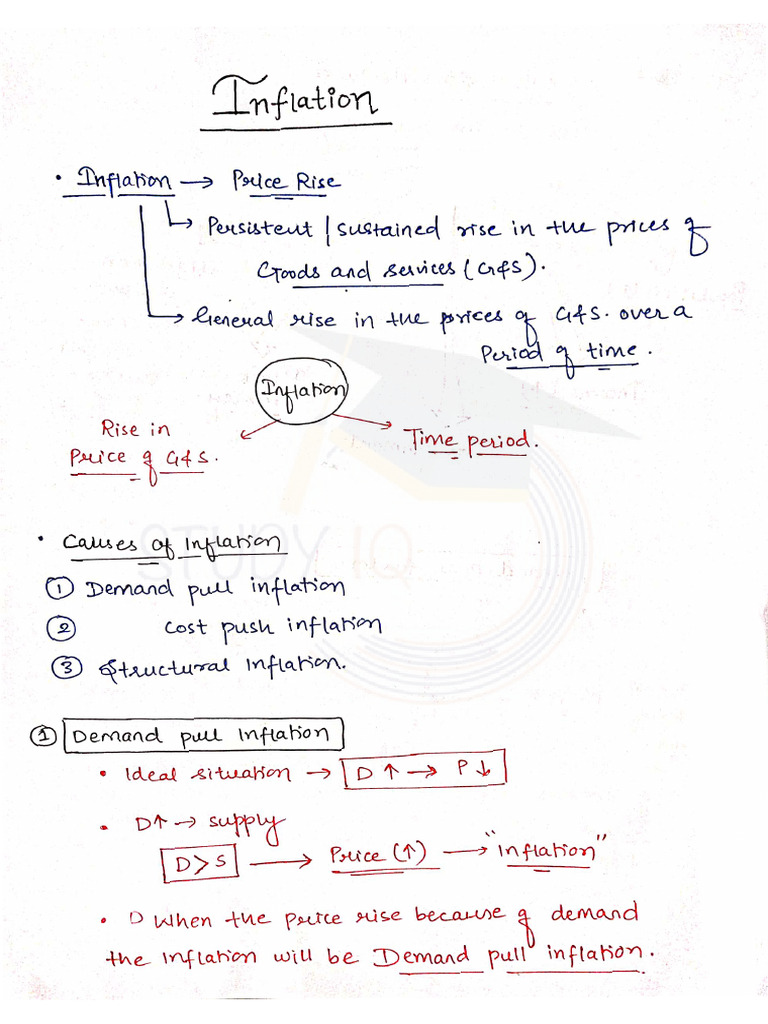 Inflation
• Inflation → Price Rise
↳ Persistent / sustained rise in the prices of
Goods and services (G&S).
↳ General rise in the prices of G&S. over a
Period of time.
Inflation
Rise in
Price of G&S.
Time period.
STUDY IQ
• Causes of Inflation
① Demand pull inflation
② Cost push inflation
③ Structural Inflation.
① Demand pull Inflation
• Ideal situation → D ↑ → P ↓
• D↑ → supply
D > S → Price (↑) → "inflation"
• D When the price rise because of demand
the inflation will be Demand pull inflation.